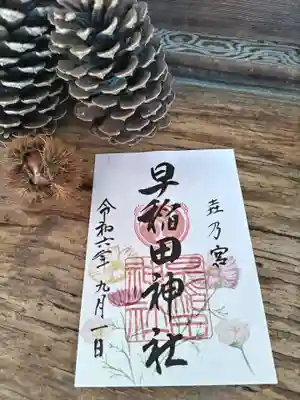 壵乃宮
早稲田神社
令和六年九月一日